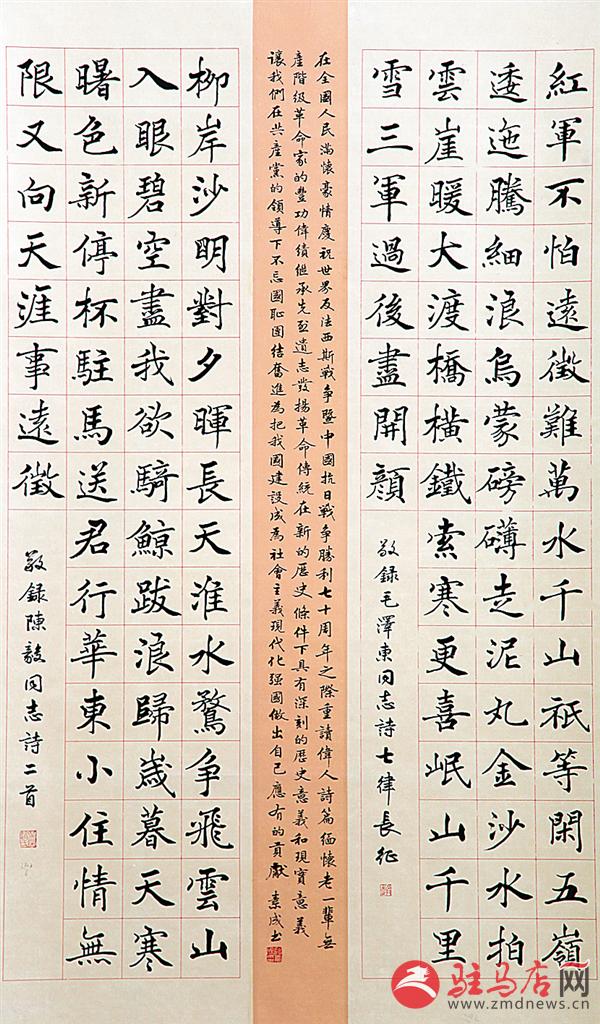 紅軍不怕遠徵難萬水千山祇等閑五嶺
逶迤騰細浪烏蒙磅礴走泥丸金沙水拍
雲崖暖大渡橋橫鐵索寒更喜岷山千里
雪三軍過後盡開顔
敬録毛澤東同志詩七律長征
在全國人民滿懷豪情慶祝世界反法西斯戰争暨中國抗日戰争勝利七十周年之際重讀偉人詩篇緬懷老一輩無
産階级革命家的豐功偉績繼承先烈遺志發揚革命傳統在新的歷史條件下具有深刻的歷史意義和現實意義
讓我們在共産黨的領導下不忘國恥團结奮進為把我國建設成為社會主義現代化强國做出自己應有的貢獻 素成书
柳岸沙明對夕暉長天淮水鶩争飛雲山
入眼碧空盡我欲騎鯨跋浪歸歲暮天寒
曙色新停杯駐馬送君行華東小住情無
限又向天涯事遠徵
敬録陳毅同志詩二首
驻马店网
www.zmdnews.cn